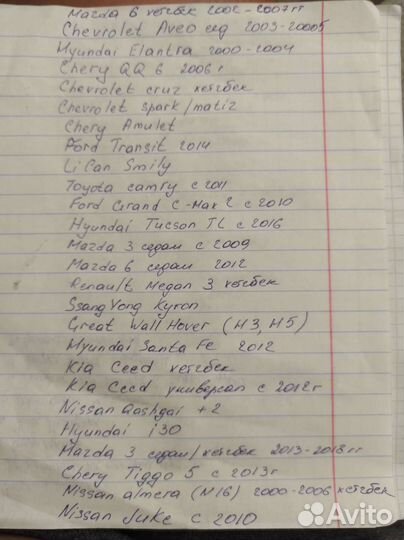 Mazda 6 хетчбек 2002-2007гг
Chevrolet Aveo сед 2003-20005
Hyundai Elantra 2000-2004
Chery QQ 6 2006г
Chevrolet cruz хетчбек
Chevrolet spark/matiz
Chery Amulet
Ford Transit 2014
Lifan Smily
Toyota camry c 2011
Ford Grand C-Max 2 c 2010
Hyundai Tucson TL c 2016
Mazda 3 седан с 2009
Mazda 6 седан 2012
Renault Megan 3 хетчбек
SsangYong Kyron
Great Wall Hover (H3, H5)
Hyundai Santa Fe 2012
Kia Ceed хетчбек
Kia Ceed универсал с 2012г
Nissan Qashgai +2
Hyundai i30
Mazda 3 седан/хетчбек 2013-2018гг
Chery Tiggo 5 c 2013г
Nissan almera (N16) 2000-2006 хетчбек
Nissan Juke c 2010
Avito